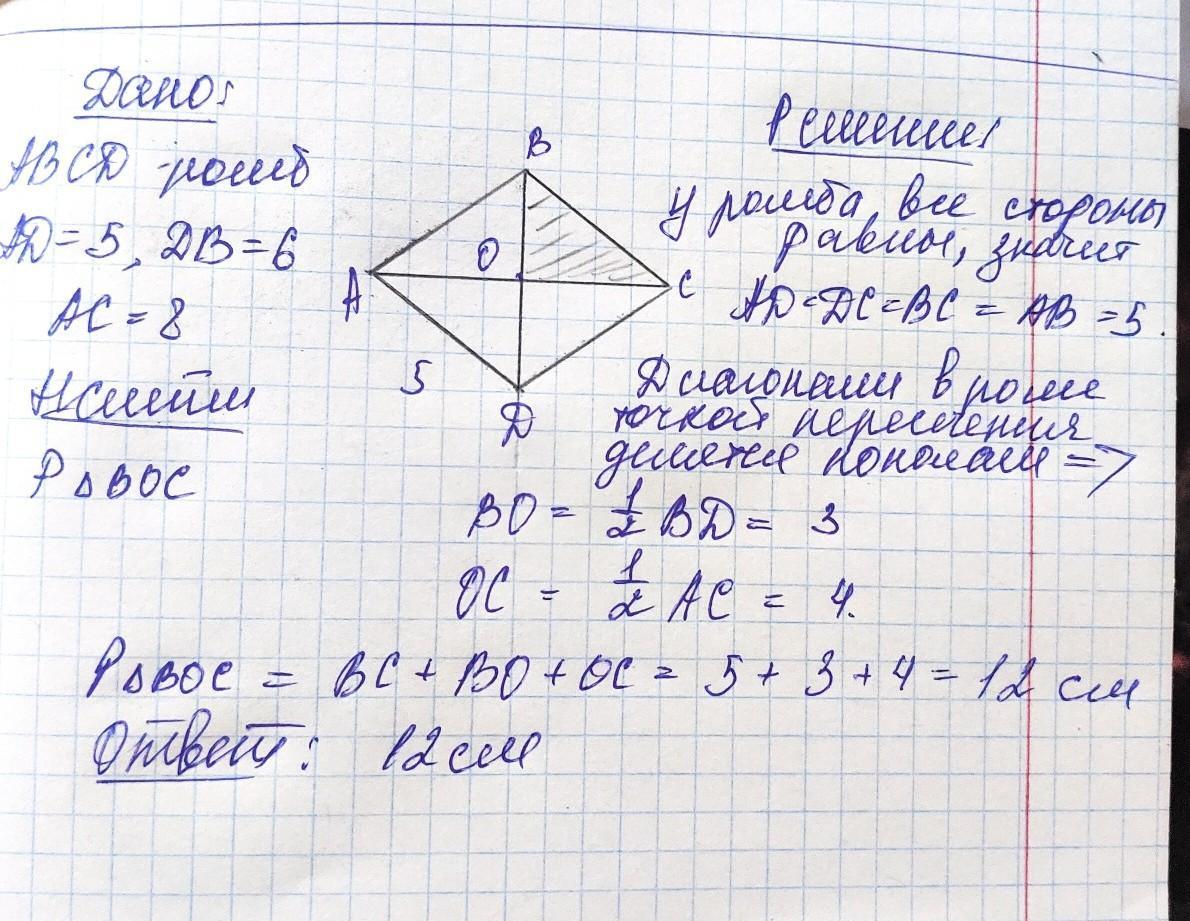 Дано:
ABCD - ромб
AD = 5, DB = 6
AC = 8
Найти
P△BOC
B
O
A
C
5
D
Решение:
У ромба все стороны
равны, значит
AD = DC = BC = AB = 5.
Диагонали в ромбе
точкой пересечения
делятся пополам =>
BO = 1/2 BD = 3
OC = 1/2 AC = 4.
P△BOC = BC + BO + OC = 5 + 3 + 4 = 12 см
Ответ: 12 см